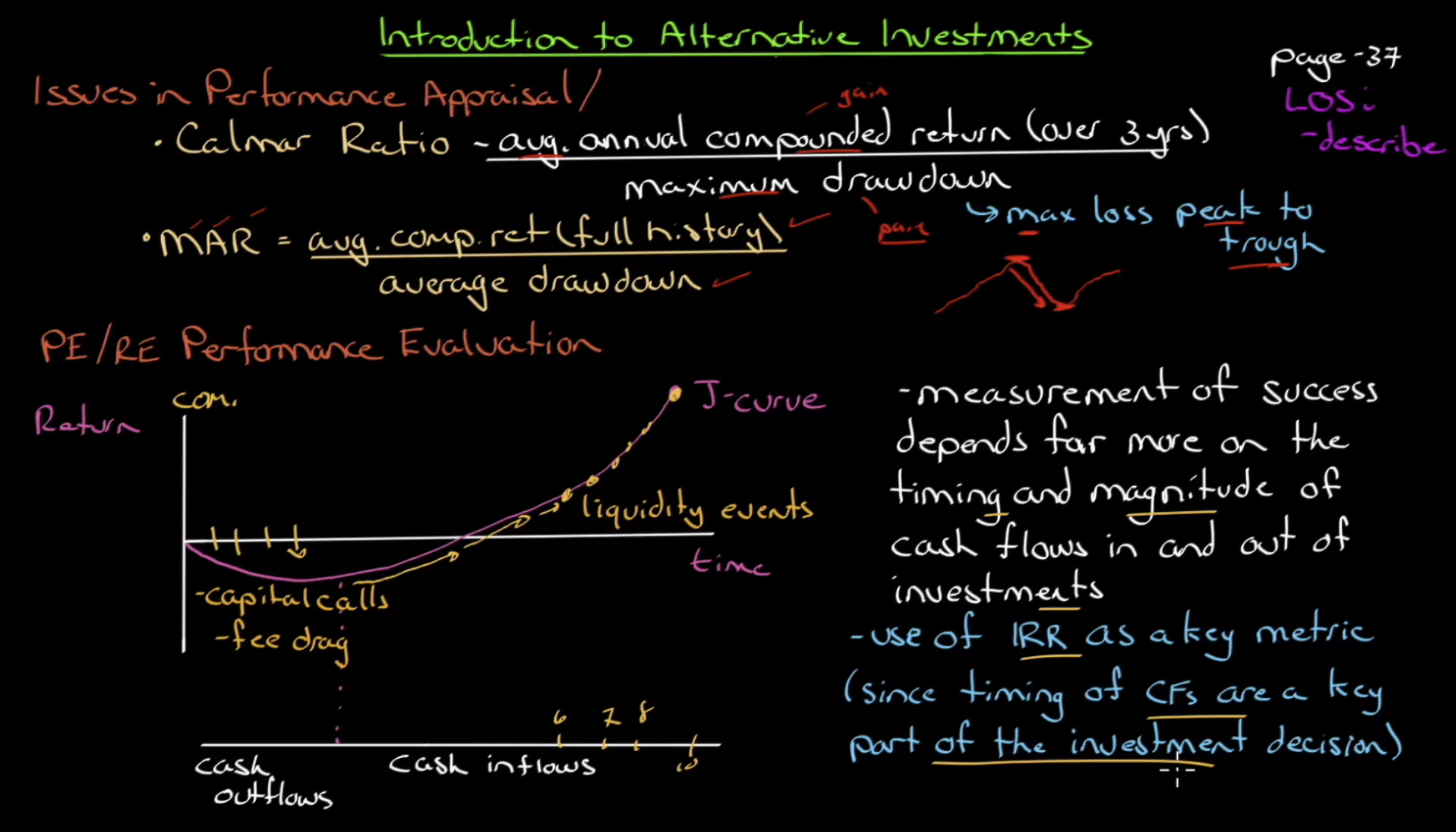 Introduction to Alternative Investments
page-37
LOS:
- describe
Issues in Performance Appraisal/
gain
• Calmar Ratio - avg. annual compounded return (over 3 yrs)
maximum drawdown
↳ max loss peak to
trough
pain
• MAR = avg. comp. ret (full history)
average drawdown
PE/RE Performance Evaluation
Return
com.
J-curve
liquidity events
time
- capital calls
- fee drag
6 7 8
10
cash
outflows
cash inflows
- measurement of success
depends far more on the
timing and magnitude of
cash flows in and out of
investments
- use of IRR as a key metric
(since timing of CFs are a key
part of the investment decision)